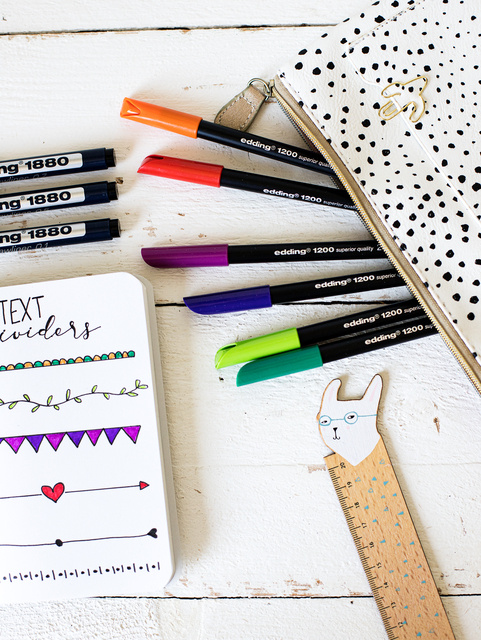 edding® 1200 superior quality
edding® 1200 superior quality
ng® 1880
ng® 1880
ng® 1880
edding® 1200 superior quality
edding® 1200 superior
edding® 1200 superior
edding® 1200 superior
TEXT
ividers
20
19